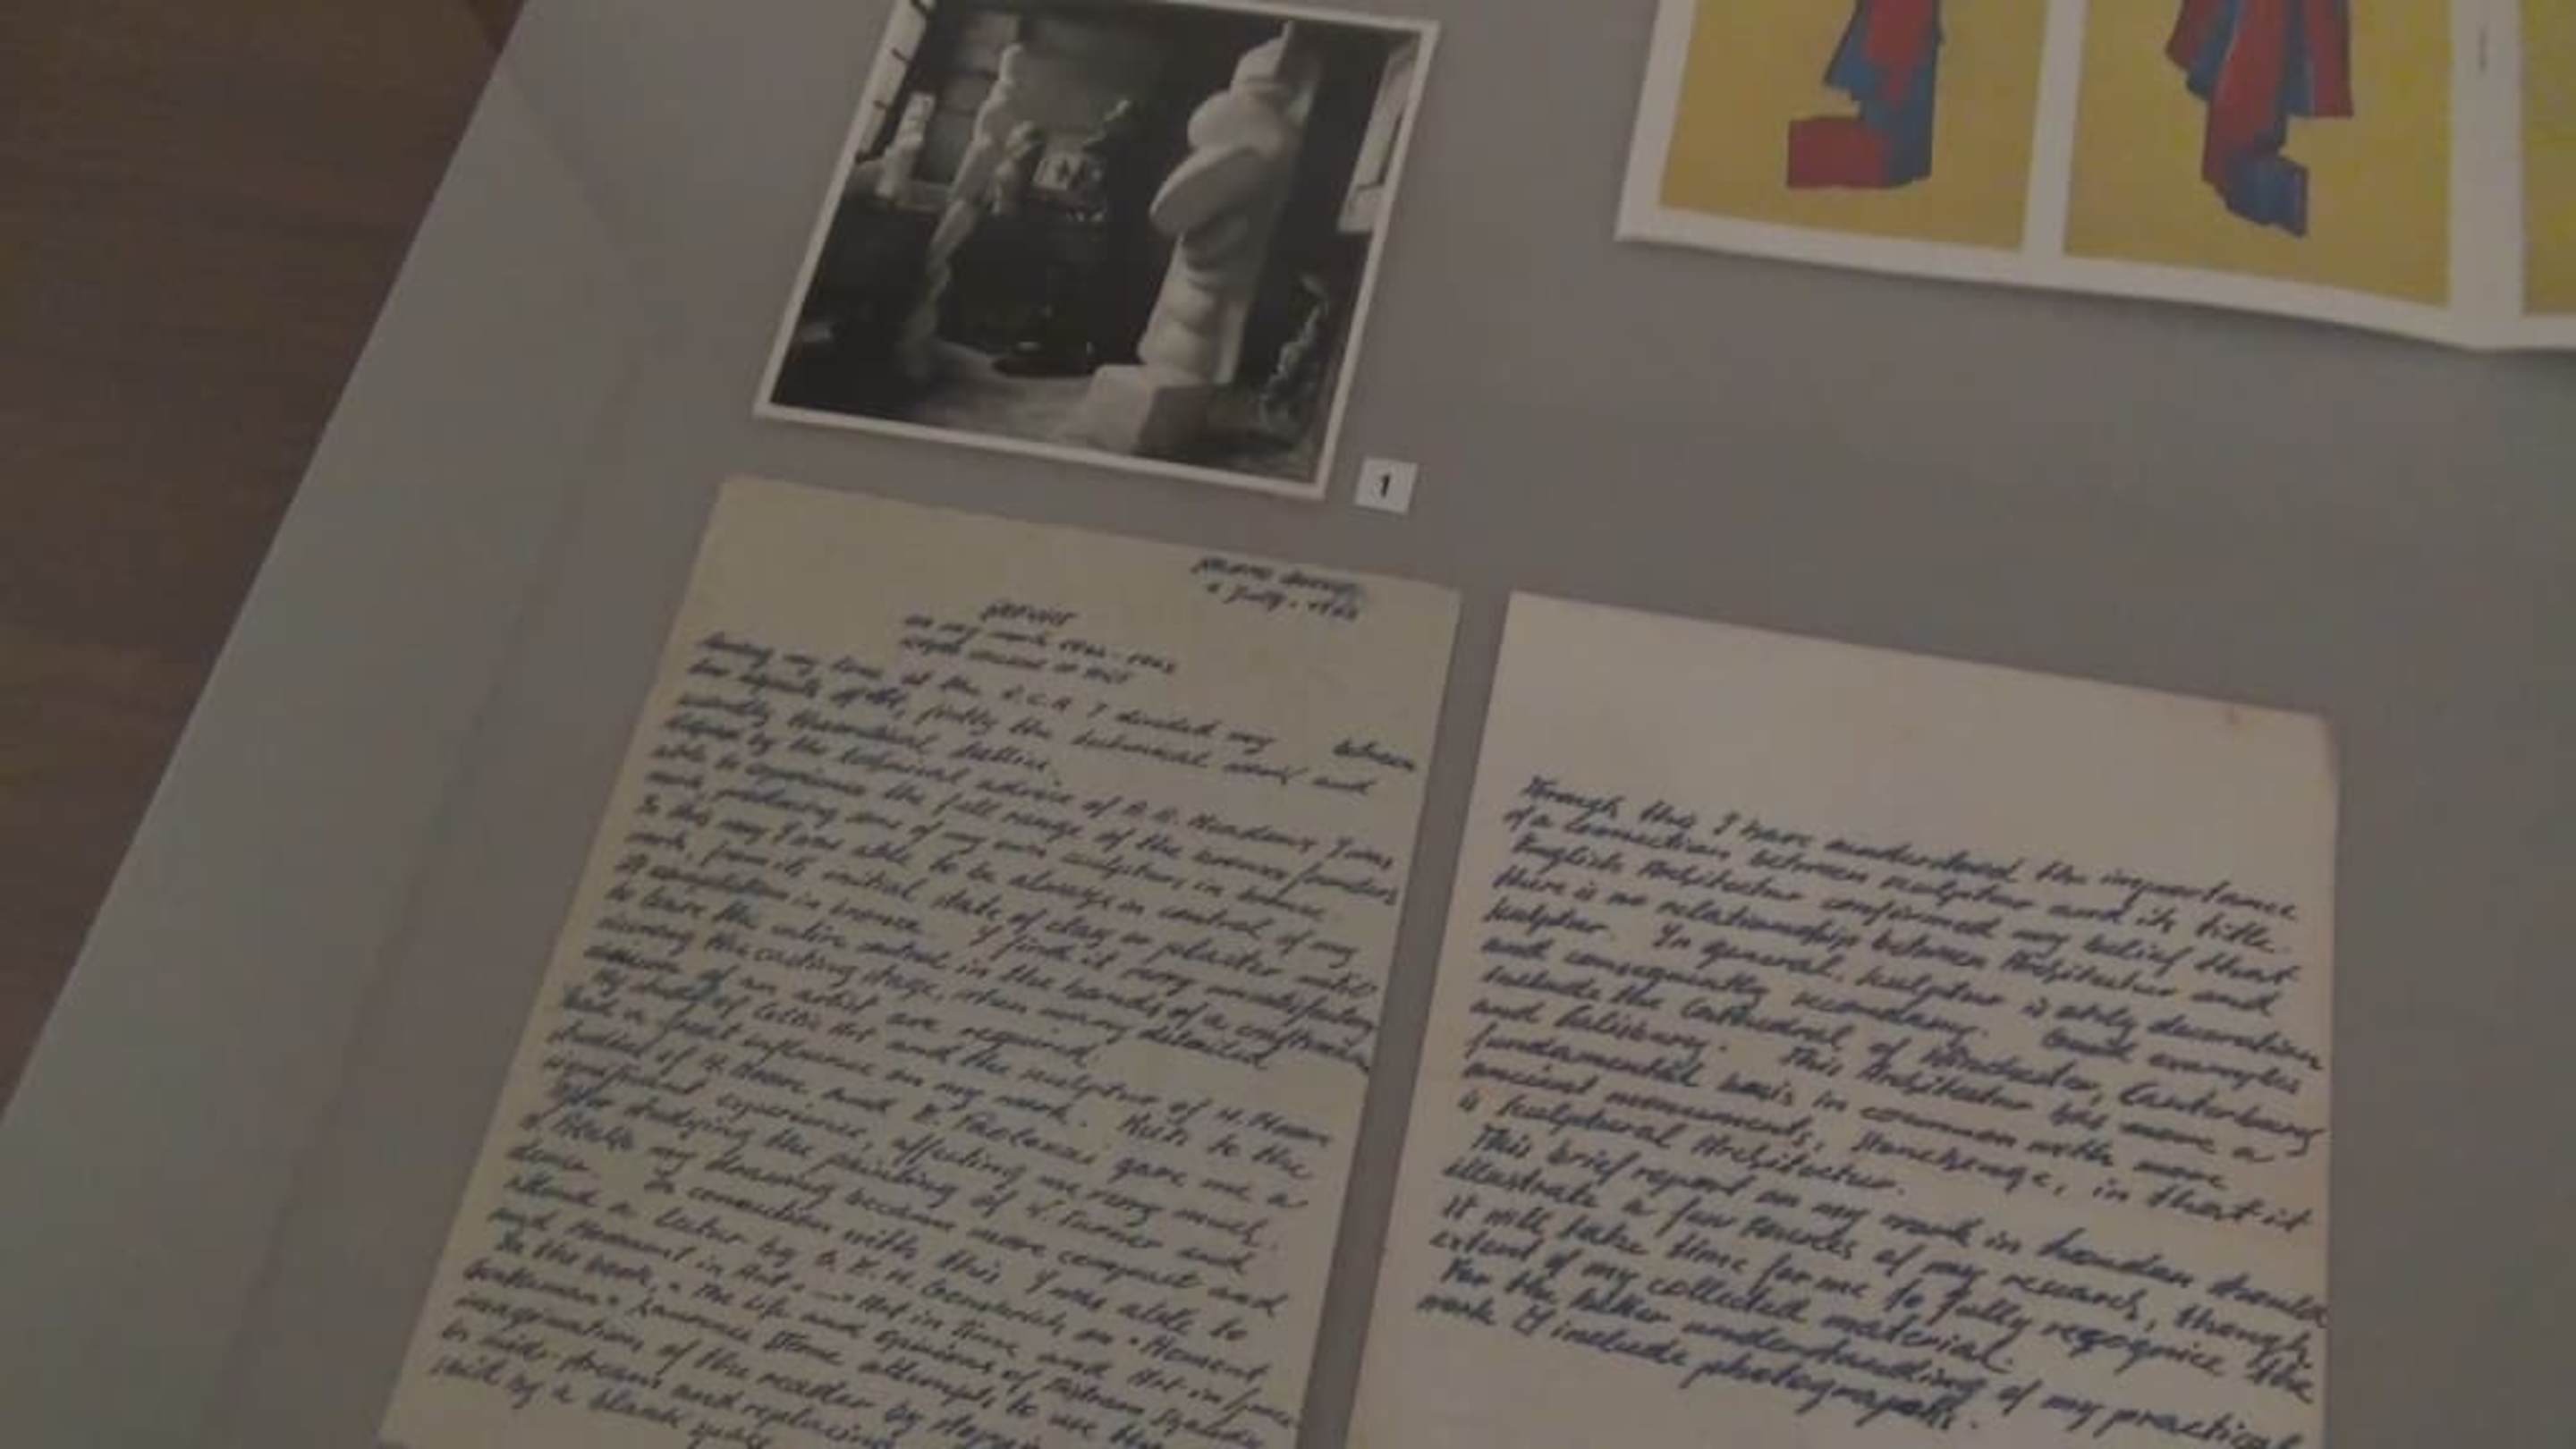 1
July. 1963
REPORT
on my work 1962 - 1963
ROYAL COLLEGE OF ART
During my time at the R.C.A I divided my between
two aspects of Art, firstly the technical work and
secondly theoretical studies.
by the technical advice of A. H. I was
able to experience the full range of the bronze founders
work, producing one of my own sculpture in bronze.
In this way I was able to be always in control of my
work, from its initial state of clay or plaster until
its completion in bronze. I find it very unsatisfactory
to leave the entire control in the hands of a craftsman
during the casting stage, when many detailed
of an artist are required.
My study of Celtic Art and the sculpture of H. Moore
had a great influence on my work. Visits to the
studios of H. Moore and E. Paolozzi gave me a
experience, affecting me very much.
After studying the painting of W. Turner and
my drawing became more compact and
dense. In connection with this I was able to
attend a lectur by E. H. Gombrich, on "Moment
and Movement in Art, Art in time and Art in space
In the book, "The life and opinions of Tristram Shandy
Gentleman" Lawrence Sterne attempts to use the
imagination of the reader by stopping
in mid-stream and replacing
said by a blank space
Through this I have understood the importance
of a connection between sculptur and its title.
English Architectur confirmed my belief that
there is no relationship between Architectur and
Sculptur. In general, sculptur is only decoration
and consequently secondary. Good examples
include the Cathedral of Winchester, Canterbury
and Salisbury. This Architectur has more a
fundamental basis in common with more
ancient monuments, Stonehenge, in that it
is Sculptural Architectur.
This brief report on my work in London should
illustrate a few sources of my research, though
it will take time for me to fully regognice the
extent of my collected material.
For the better understanding of my practical
work I include photograph's.